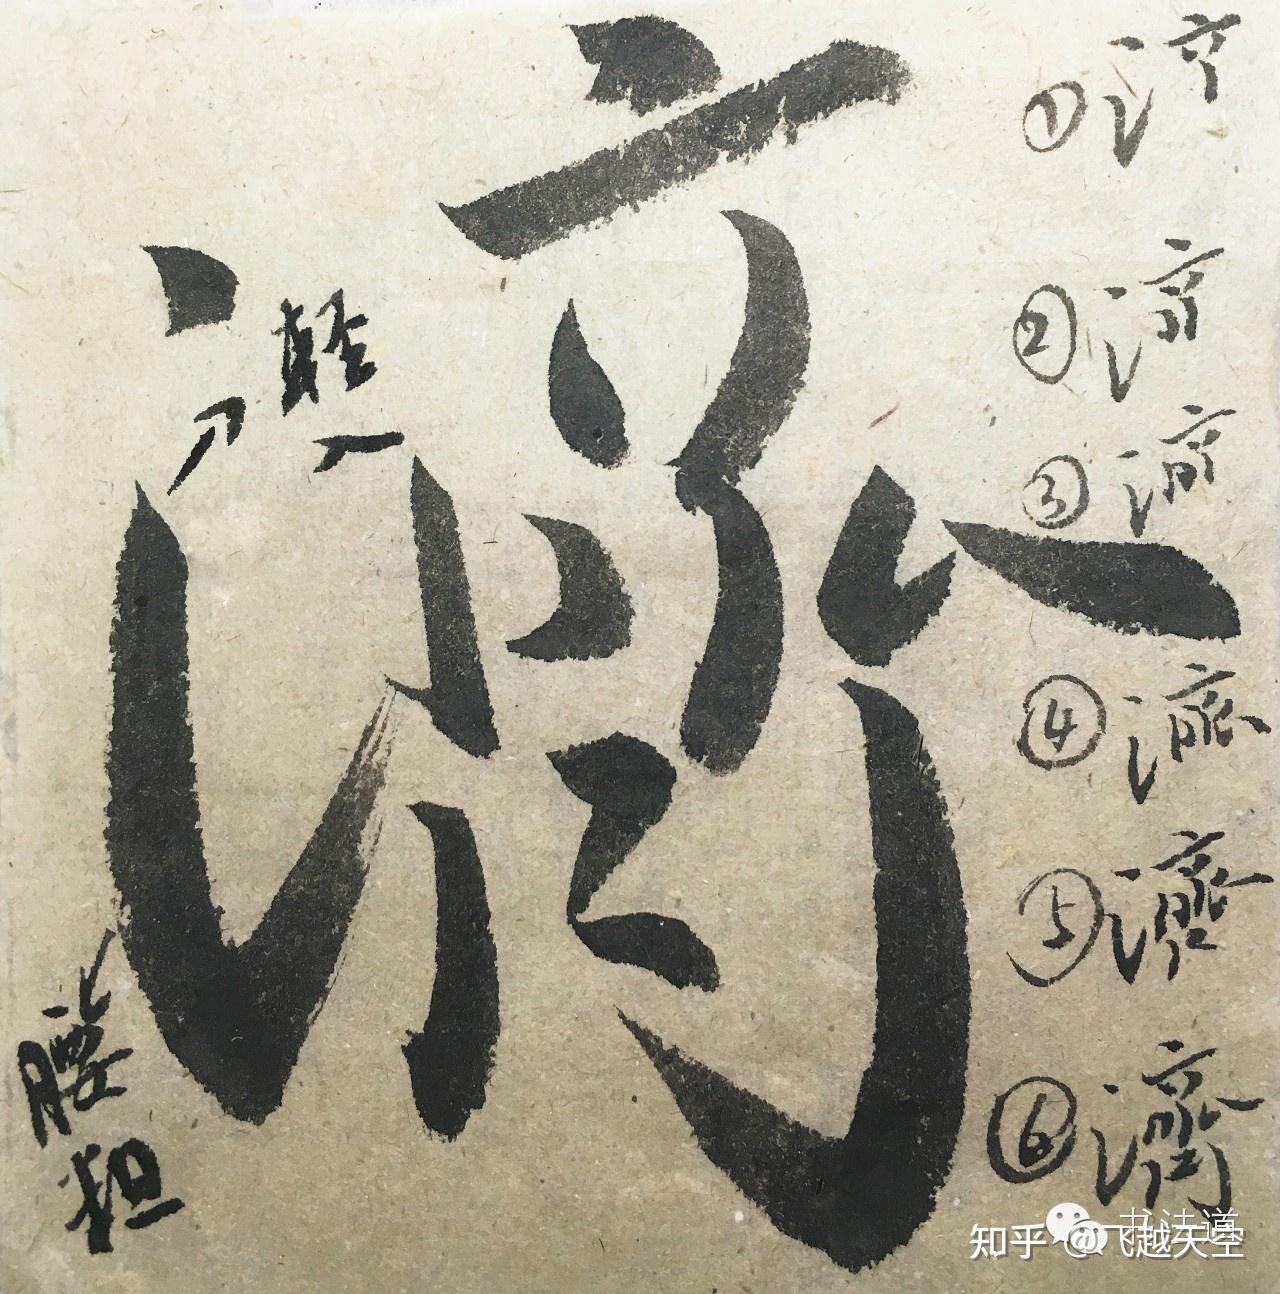 濟
輕
腰粗
①
②
③
④
⑤
⑥ 濟
书法道
知乎 @飞越天空